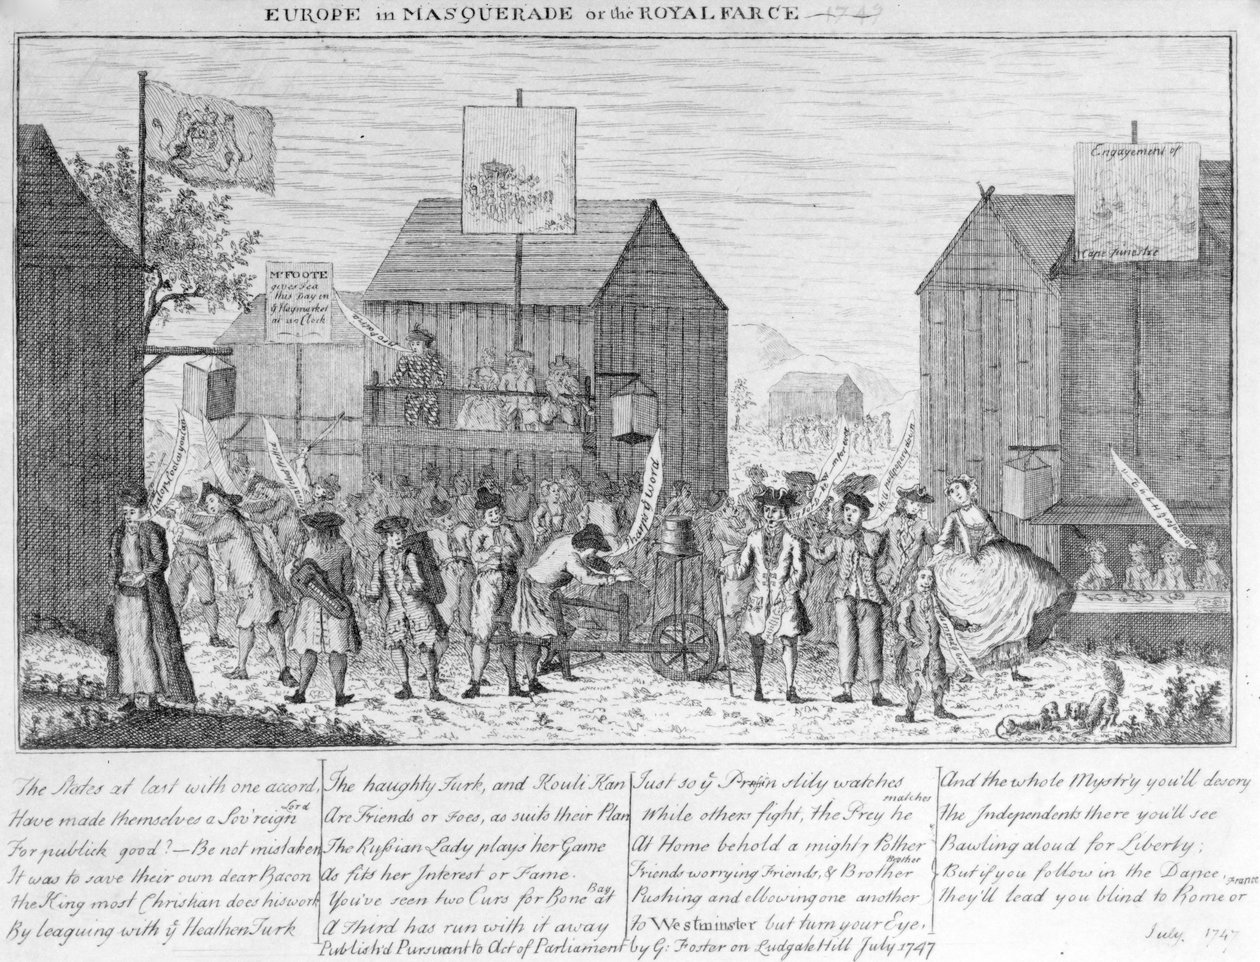 EUROPE in MASQUERADE or the ROYAL FARCE 1749
Mr. FOOTE
gives Tea
this Day in
ye Haymarket
at un Clock
Engagement of
Cape finestre
word
The States at last with one accord,
Have made themselves a Sov'reign Lord
For publick good?—Be not mistaken
It was to save their own dear Bacon
the King most Christian does his work
By leaguing with ye Heathen Turk
The haughty Turk, and Kouli Kan
Are Friends or Foes, as suits their Plan
The Russian Lady plays her Game
As fits her Interest or Fame.
You've seen two Curs for Bone at Bay,
A Third has run with it away
Just so ye Prussn slily watches
While others fight, the Prey he matches
At Home behold a mighty Pother
Friends worrying Friends, & Brother Brother
Pushing and elbowing one another
to Westminster but turn your Eye,
And the whole Mystr'y you'll descry
the Independents there you'll see
Bawling aloud for Liberty;
But if you follow in the Dance,
they'll lead you blind to Rome or France
Publish'd Pursuant to Act of Parliament by G: Foster on Ludgate Hill July 1747
July. 1747